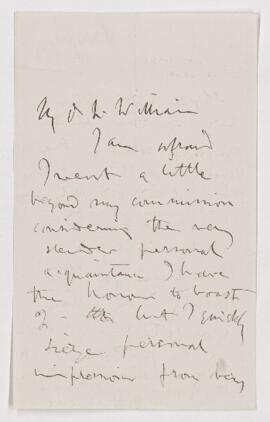 My d Sir William
I am afraid
I went a little
beyond my commission
considering the very
slender personal
acquaintance I have
the honour to boast
of – but I quickly
seize personal
impressions from very